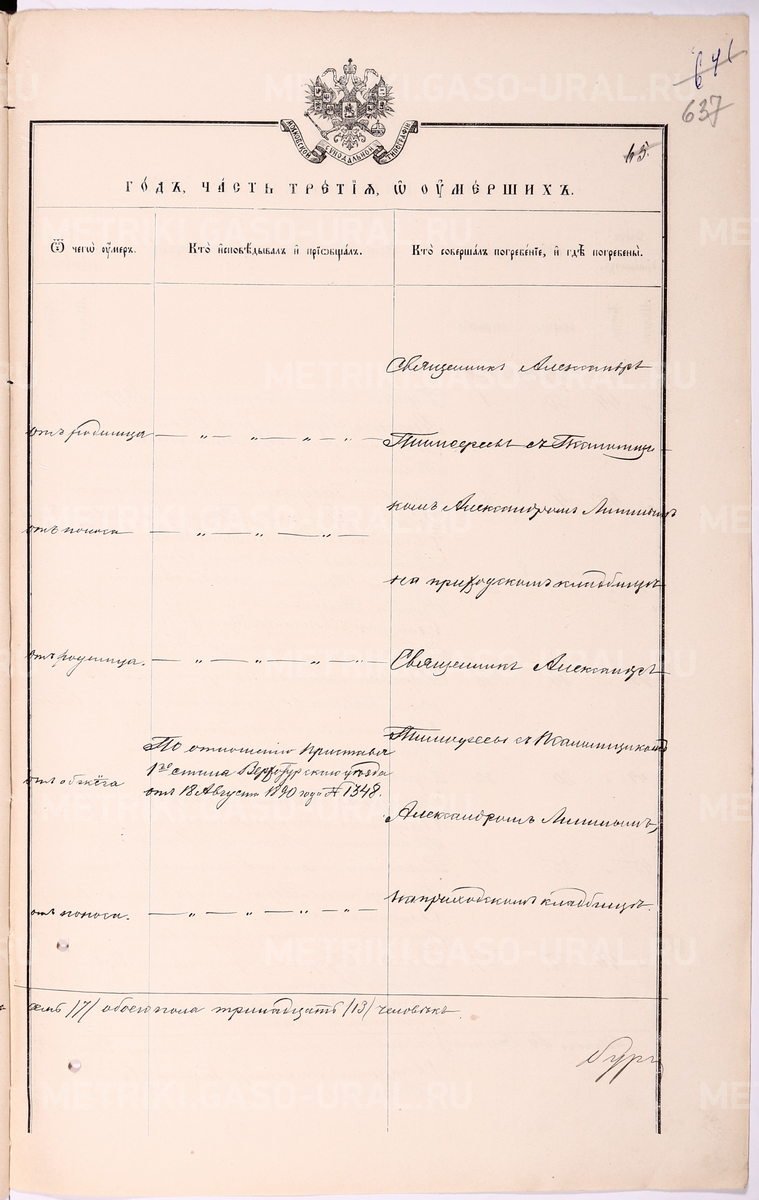 641
637
65.
МОСКОВСКОЙ СѴНОДАЛЬНОЙ ТИПОГРАФІИ
ГОДЪ, ЧАСТЬ ТРЕТІЯ, Ѿ ОУМЕРШИХЪ.
Ѿ чегѡ оумеръ.
Кто исповѣдывалъ и пріобщалъ.
Кто совершалъ погребеніе, и гдѣ погребены.
Священникъ Александръ
отъ родимца — „ — „ — „ — „ —
съ Псаломщи-
отъ поноса — „ — „ — „ —
комъ Александромъ
на приходскомъ кладбищѣ
отъ родимца. — „ — „ — „ — „ —
Священникъ Александръ
съ Псаломщикомъ
По отношенію Пристава
1го стана Верхотурскаго уѣзда
отъ 18 Августа 1890 года № 1348.
отъ обжёга
Александромъ
на приходскомъ кладбищѣ.
отъ поноса. — „ — „ — „ — „ —
семь /7/ обоего пола тринадцать /13/ человѣкъ.
METRIKI.GASO-URAL.RU